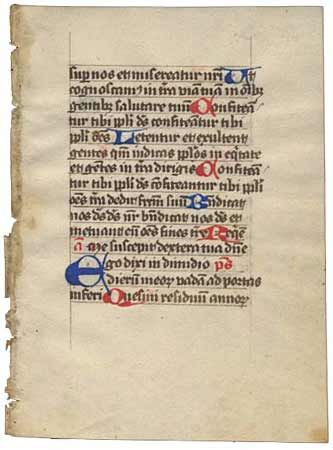 sup nos et misereatur nr̄i Ut
cognoscam⁹ in tr̄a viā tuā in oīb⁊
gentib⁊ salutare tuū Confitean
tur tibi ppl̄i de⁹ confiteātur tibi
ppl̄i oēs Letentur et exultent
gentes qm̄ iudicas pplōs in eq̄tate
et gētes in tr̄a dirigis Confiteān
tur tibi ppl̄i de⁹ cōfiteantur tibi ppl̄i
oēs tr̄a dedit suū Bn̄dicat
nos de⁹ de⁹ nr̄ bn̄dicat nos de⁹ et
metuant eū oēs fines tre
a me suscepit dextera tua dn̄e
Ego dixi in dimidio ps
dierū meoꝝ vadā ad portas
inferi Quesiui residuū annoꝝ